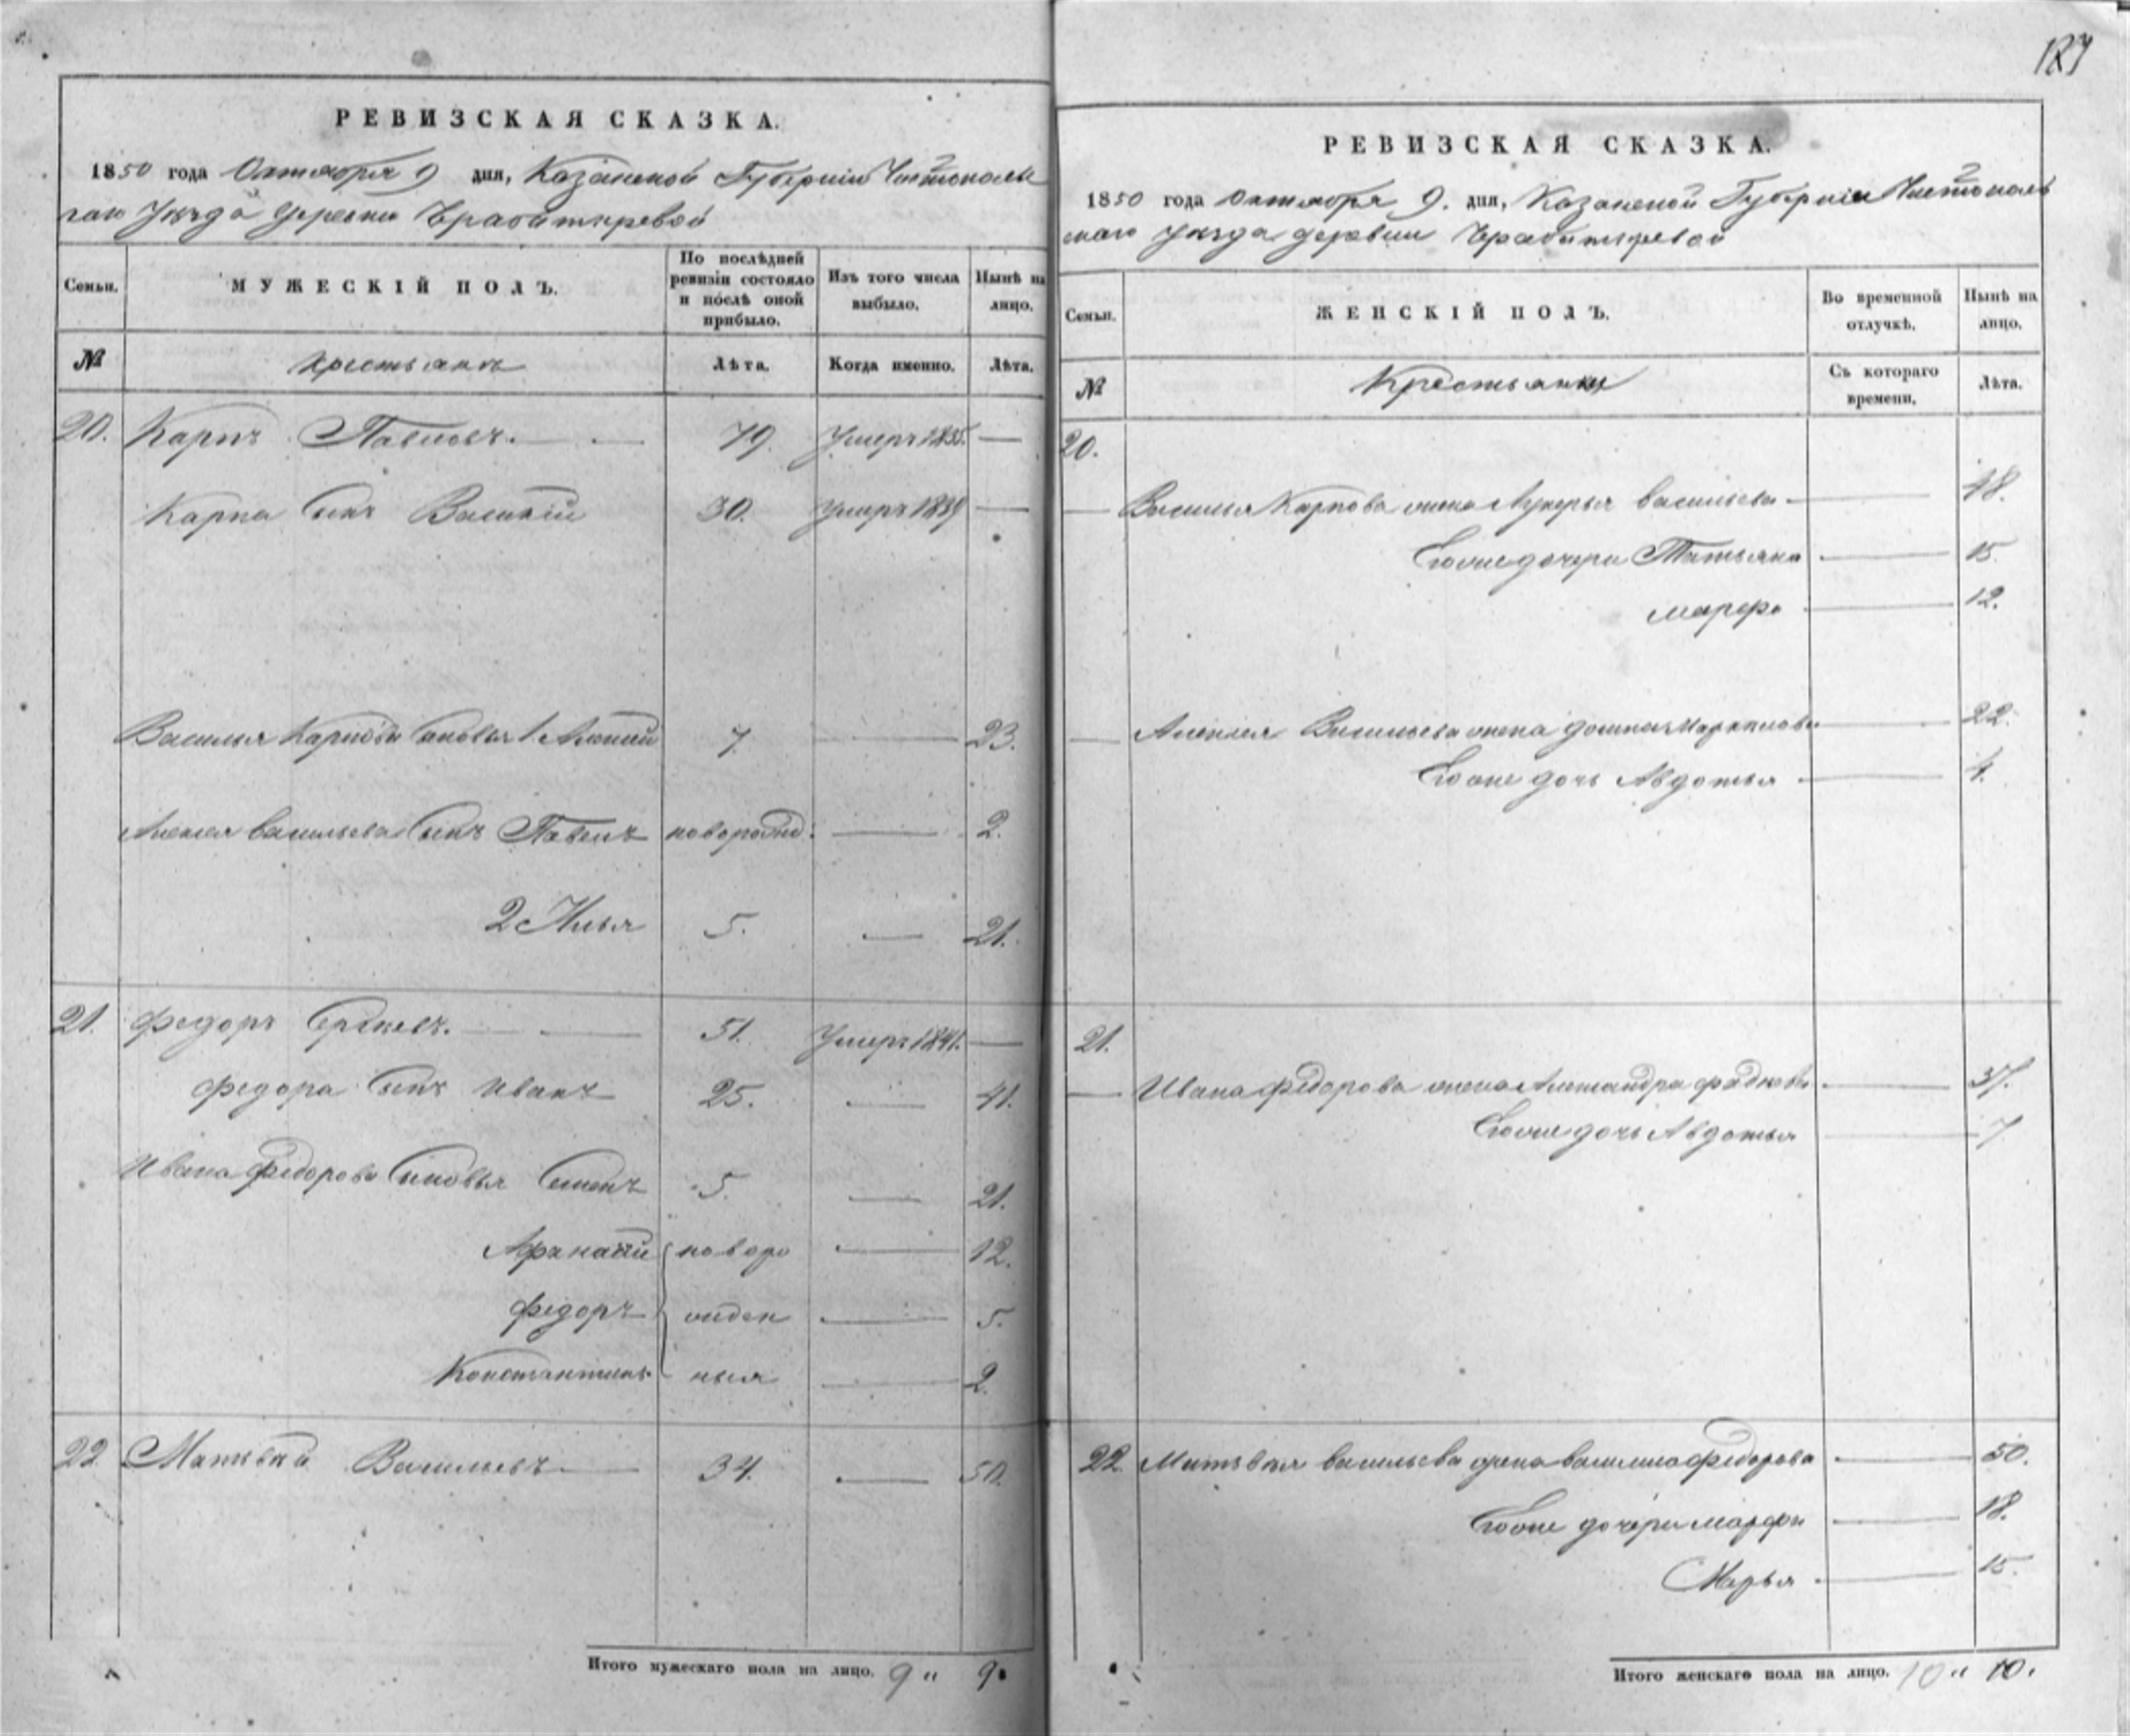 127
РЕВИЗСКАЯ СКАЗКА.
1850 года Октября 9 дня, Казанской Губернии Чистополь
скаго Уезда деревни
Семьи.
МУЖЕСКІЙ ПОЛЪ.
По послѣдней ревизіи состояло и послѣ оной прибыло.
Изъ того числа выбыло.
Нынѣ на лицо.
№
Крестьянъ
Лѣта.
Когда именно.
Лѣта.
20. Карпъ Павловъ. 79. Умеръ 1835. —
Карпа сынъ Василій 30. Умеръ 1839 —
Василья Карпова сыновья 1 Алексей 7 — 23.
Алексея Васильева сынъ Павелъ новорожд: — 2.
2 Илья 5. — 21.
21. Федоръ Сергеевъ. 51. Умеръ 1841. —
Федора сынъ Иванъ 25. — 41.
Ивана Федорова сыновья Семенъ 5. — 21.
Афанасий новоро — 12.
Федоръ жден — 5.
Константинъ ныя — 2.
22 Матвей Васильевъ 34. — 50.
Итого мужескаго пола на лицо. 9 " 9.
РЕВИЗСКАЯ СКАЗКА.
1850 года Октября 9. дня, Казанской Губернии Чистополь
скаго Уезда деревни
Семьи.
ЖЕНСКІЙ ПОЛЪ.
Во временной отлучкѣ.
Нынѣ на лицо.
№
Крестьянки
Съ котораго времени.
Лѣта.
20.
— Василья Карпова жена Лукерья Васильева — 48.
Его же дочери Татьяна — 15
Марфа — 12.
— Алексея Васильева жена — 22.
Его же дочь Авдотья — 4.
21.
— Ивана Федорова жена Александра — 37.
Его же дочь Авдотья — 7
22 Матвея Васильева жена Василиса Федорова — 50.
Его же дочери Марфа — 18.
Марья — 15.
Итого женскаго пола на лицо. 10 " 10.